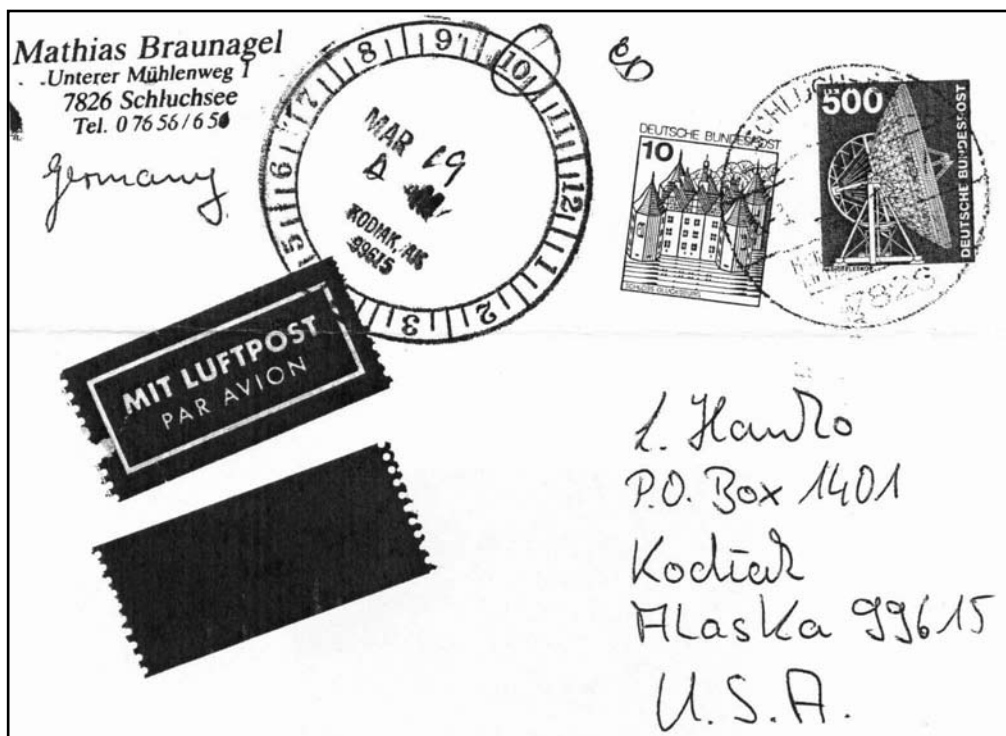 Mathias Braunagel
Unterer Mühlenweg 1
7826 Schluchsee
Tel. 0 76 56 / 6 50
Germany
8 9 10 11 12 1 2 3 5 6 7
MAR 09
A
KODIAK, AK
99615
DEUTSCHE BUNDESPOST
10
SCHLOSS GLÜCKSBURG
500
DEUTSCHE BUNDESPOST
7826
MIT LUFTPOST
PAR AVION
P.O. Box 1401
Kodiak
Alaska 99615
U.S.A.